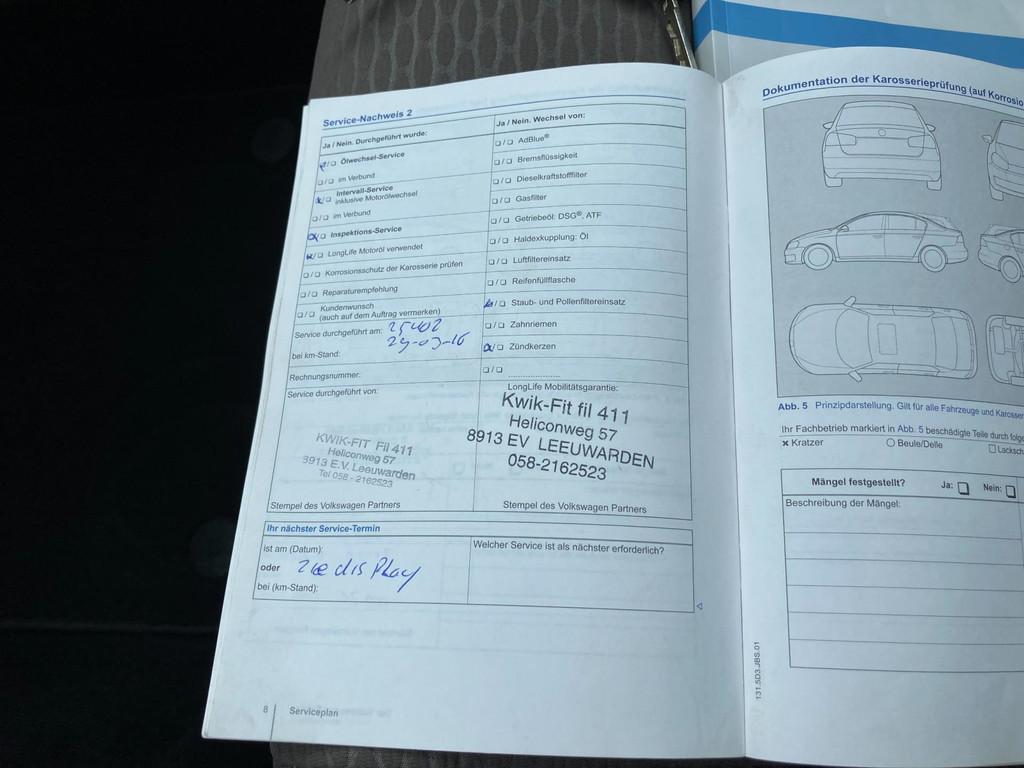 Service-Nachweis 2
Ja / Nein. Durchgeführt wurde:
/ ❏ Ölwechsel-Service
❏ / ❏ im Verbund
/ ❏ Intervall-Service
inklusive Motorölwechsel
❏ / ❏ im Verbund
/ ❏ Inspektions-Service
/ ❏ LongLife Motoröl verwendet
❏ / ❏ Korrosionsschutz der Karosserie prüfen
❏ / ❏ Reparaturempfehlung
❏ / ❏ Kundenwunsch
(auch auf dem Auftrag vermerken)
Service durchgeführt am: 25402
bei km-Stand: 29-03-16
Rechnungsnummer:
Service durchgeführt von:
KWIK-FIT Fil 411
Heliconweg 57
8913 E.V. Leeuwarden
Tel 058 - 2162523
Stempel des Volkswagen Partners
Ja / Nein. Wechsel von:
❏ / ❏ AdBlue®
❏ / ❏ Bremsflüssigkeit
❏ / ❏ Dieselkraftstofffilter
❏ / ❏ Gasfilter
❏ / ❏ Getriebeöl: DSG®, ATF
❏ / ❏ Haldexkupplung: Öl
❏ / ❏ Luftfiltereinsatz
❏ / ❏ Reifenfüllflasche
/ ❏ Staub- und Pollenfiltereinsatz
❏ / ❏ Zahnriemen
/ ❏ Zündkerzen
❏ / ❏
LongLife Mobilitätsgarantie:
Kwik-Fit fil 411
Heliconweg 57
8913 EV LEEUWARDEN
058-2162523
Stempel des Volkswagen Partners
Ihr nächster Service-Termin
ist am (Datum):
oder zie display
bei (km-Stand):
Welcher Service ist als nächster erforderlich?
8 Serviceplan
Dokumentation der Karosserieprüfung (auf
Abb. 5 Prinzipdarstellung. Gilt für alle Fahrzeuge und
Ihr Fachbetrieb markiert in Abb. 5 beschädigte Teile durch
× Kratzer ○ Beule/Delle ❏
Mängel festgestellt? Ja: ❏ Nein: ❏
Beschreibung der Mängel:
131.5D3.JBS.01